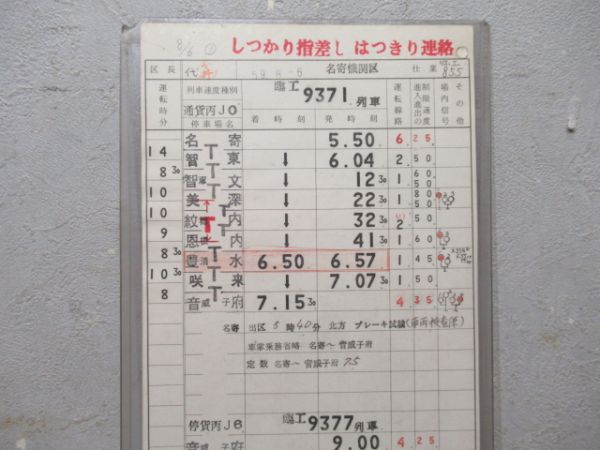 8/6 ①
しつかり指差し はつきり連絡
区長 代 59.8.-6 名寄機関区 仕業 臨工855
運転時分 列車速度種別 臨工 9371 列車 運転線路 制限速度 進入進出の 場内信号 その他
通貨丙J0
停車場名 着時刻 発時刻
名寄 5.50 6 25
14
智東 ↓ 6.04 2 50
8 30
智 文 ↓ 12 30 1 60 50
10
美深 ↓ 22 30 1 80 50
10
紋 内 ↓ 32 30 2 50
9
恩 内 ↓ 41 30 1 60
8 30
豊清水 6.50 6.57 1 45
10 30
咲来 ↓ 7.07 30 1 50
8
音威子府 7.15 30 4 35
名寄 出区 5時40分 北方 ブレーキ試験(車両検査係)
車掌乗務省略 名寄〜音威子府
定数 名寄〜音威子府 75
停貨丙J6 臨工 9377 列車
音威子府 9.00 4 25